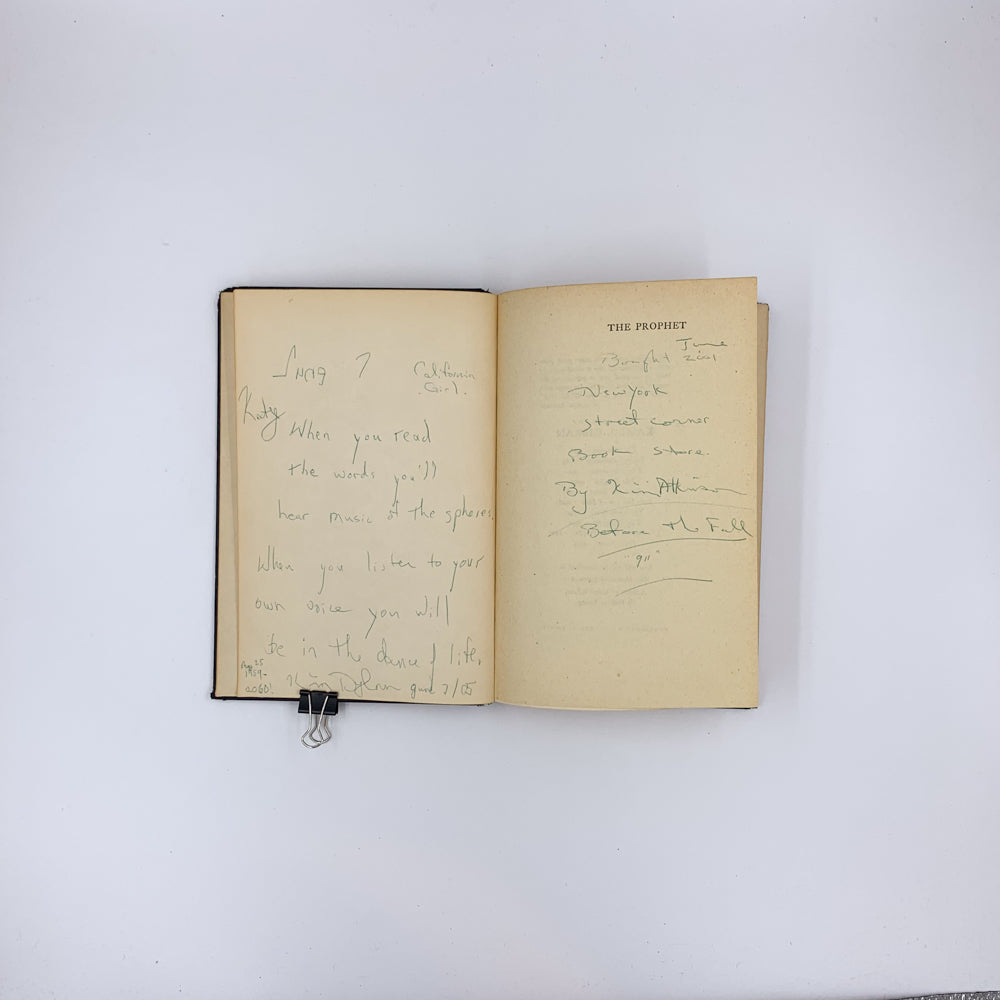 7
California
Girl.
Katy
When you read
the words you'll
hear music of the spheres.
When you listen to your
own voice you will
be in the dance of life.
25
1959-
2060!
Kim
7/05
THE PROPHET
Bought June
2001
New York
street corner
Book store.
By Kim Atkinson
Before the Fall
"911"